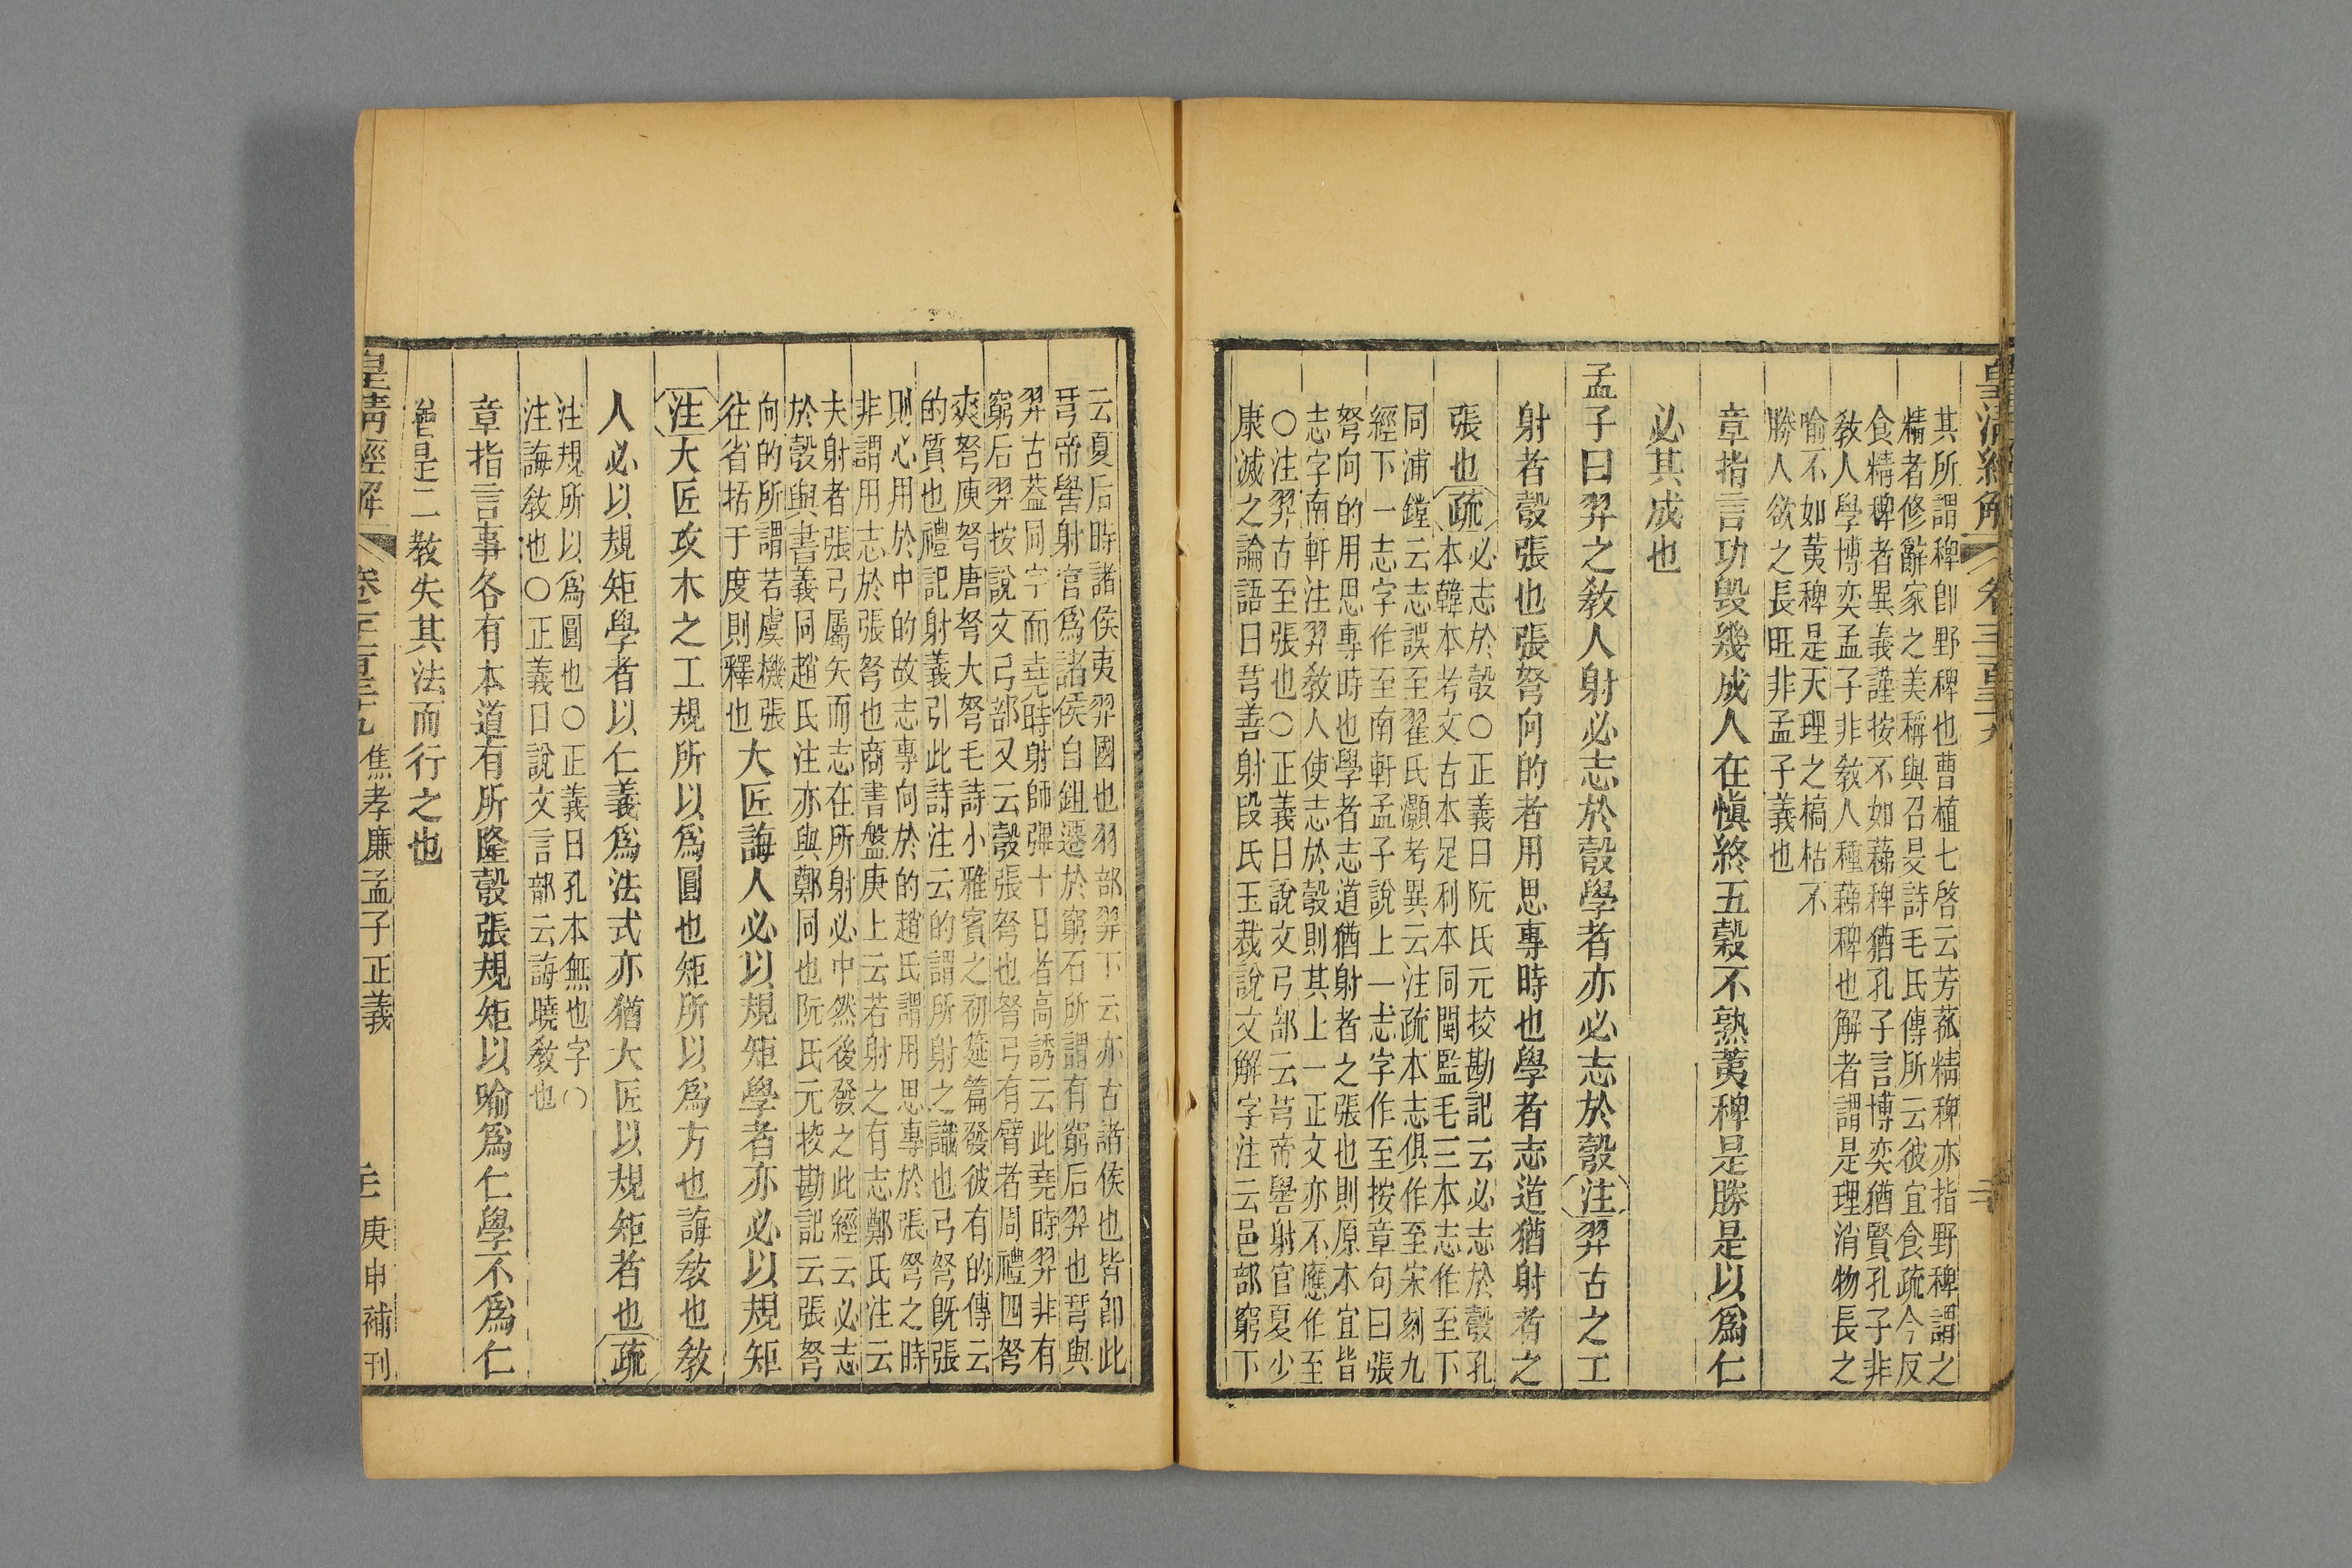 其所謂稗卽野稗也曹植七啓云芳菰精稗亦指野稗謂之
精者修辭家之美稱與召旻詩毛氏傳所云彼宜食疏今反
食精稗者異義謹按不如蕛稗猶孔子言博奕猶賢孔子非
敎人學博奕孟子非敎人種蕛稗也解者謂是理消物長之
喻不如荑稗是天理之槁枯不
勝人欲之長旺非孟子義也
章指言功毀幾成人在愼終五穀不熟荑稗是勝是以爲仁
必其成也
孟子曰羿之敎人射必志於彀學者亦必志於彀注羿古之工
射者彀張也張弩向的者用思專時也學者志道猶射者之
張也疏
必志於彀〇正義曰阮氏元挍勘記云必志於彀孔
本韓本考文古本足利本同閩監毛三本志作至下
同浦鏜云志誤至翟氏灝考異云注疏本志俱作至宋刻九
經下一志字作至南軒孟子說上一志字作至按章句曰張
弩向的用思專時也學者志道猶射者之張也則原本宜皆
志字南軒注羿敎人使志於彀則其上一正文亦不應作至
〇注羿古至張也〇正義曰說文弓部云𢎗帝嚳射官夏少
康滅之論語曰𢎗善射段氏玉裁說文解字注云邑部竆下
云夏后時諸侯夷羿國也羽部羿下云亦古諸侯也皆卽此
𢎗帝嚳射官爲諸侯自鉏遷於窮石所謂有窮后羿也𢎗與
羿古葢同字而堯時射師彈十日者高誘云此堯時羿非有
窮后羿按說文弓部又云彀張弩也弩弓有臂者周禮四弩
夾弩庾弩唐弩大弩毛詩小雅賓之初筵篇發彼有的傳云
的質也禮記射義引此詩注云的謂所射之識也弓弩旣張
則心用於中的故志專向於的趙氏謂用思專於張弩之時
非謂用志於張弩也商書盤庚上云若射之有志鄭氏注云
夫射者張弓屬矢而志在所射必中然後發之此經云必志
於彀與書義同趙氏注亦與鄭同也阮氏元挍勘記云張弩
向的所謂若虞機張
往省括于度則釋也
大匠誨人必以規矩學者亦必以規矩
注大匠攻木之工規所以爲圓也矩所以爲方也誨敎也敎
人必以規矩學者以仁義爲法式亦猶大匠以規矩者也疏
注規所以爲圓也〇正義曰孔本無也字〇
注誨敎也〇正義曰說文言部云誨曉敎也
章指言事各有本道有所隆彀張規矩以喻爲仁學不爲仁
猶是二敎失其法而行之也
皇淸經解 焦孝廉孟子正義 庚申補刊